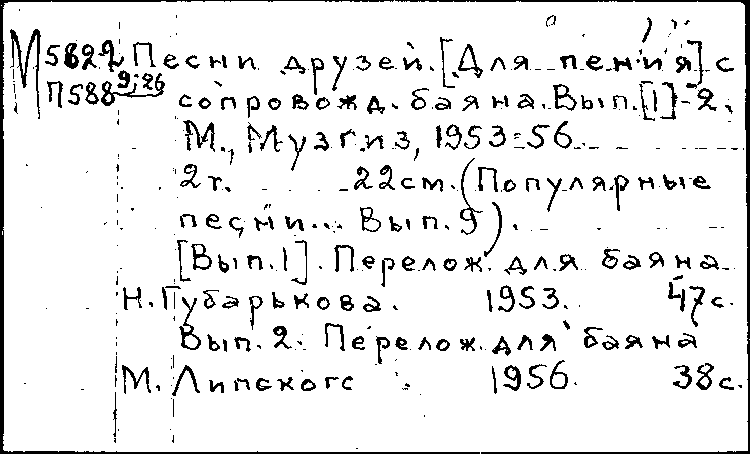 М 5822 Песни друзей. [Для пения] с
П588 9;26 сопровожд. баяна. Вып. [1]-2.
М., Музгиз, 1953-56.
2 т. 22 см. (Популярные
песни... Вып. 9).
[Вып. 1]. Перелож. для баяна
Н. Губарькова. 1953. 47 с.
Вып. 2. Перелож. для баяна
М. Липского. 1956. 38 с.